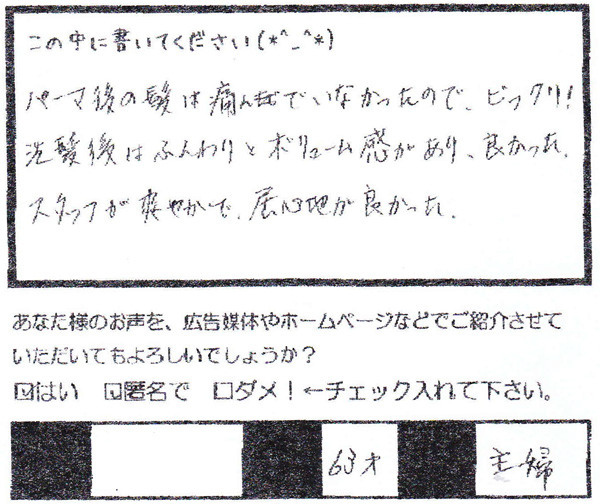 この中に書いてください(*^_^*)
パーマ後の髪は痛んでいなかったので、ビックリ！
洗髪後はふんわりとボリューム感があり、良かった。
スタッフが爽やかで、居心地が良かった。
あなた様のお声を、広告媒体やホームページなどでご紹介させて
いただいてもよろしいでしょうか？
☑はい ☑匿名で □ダメ！←チェック入れて下さい。
63才 主婦